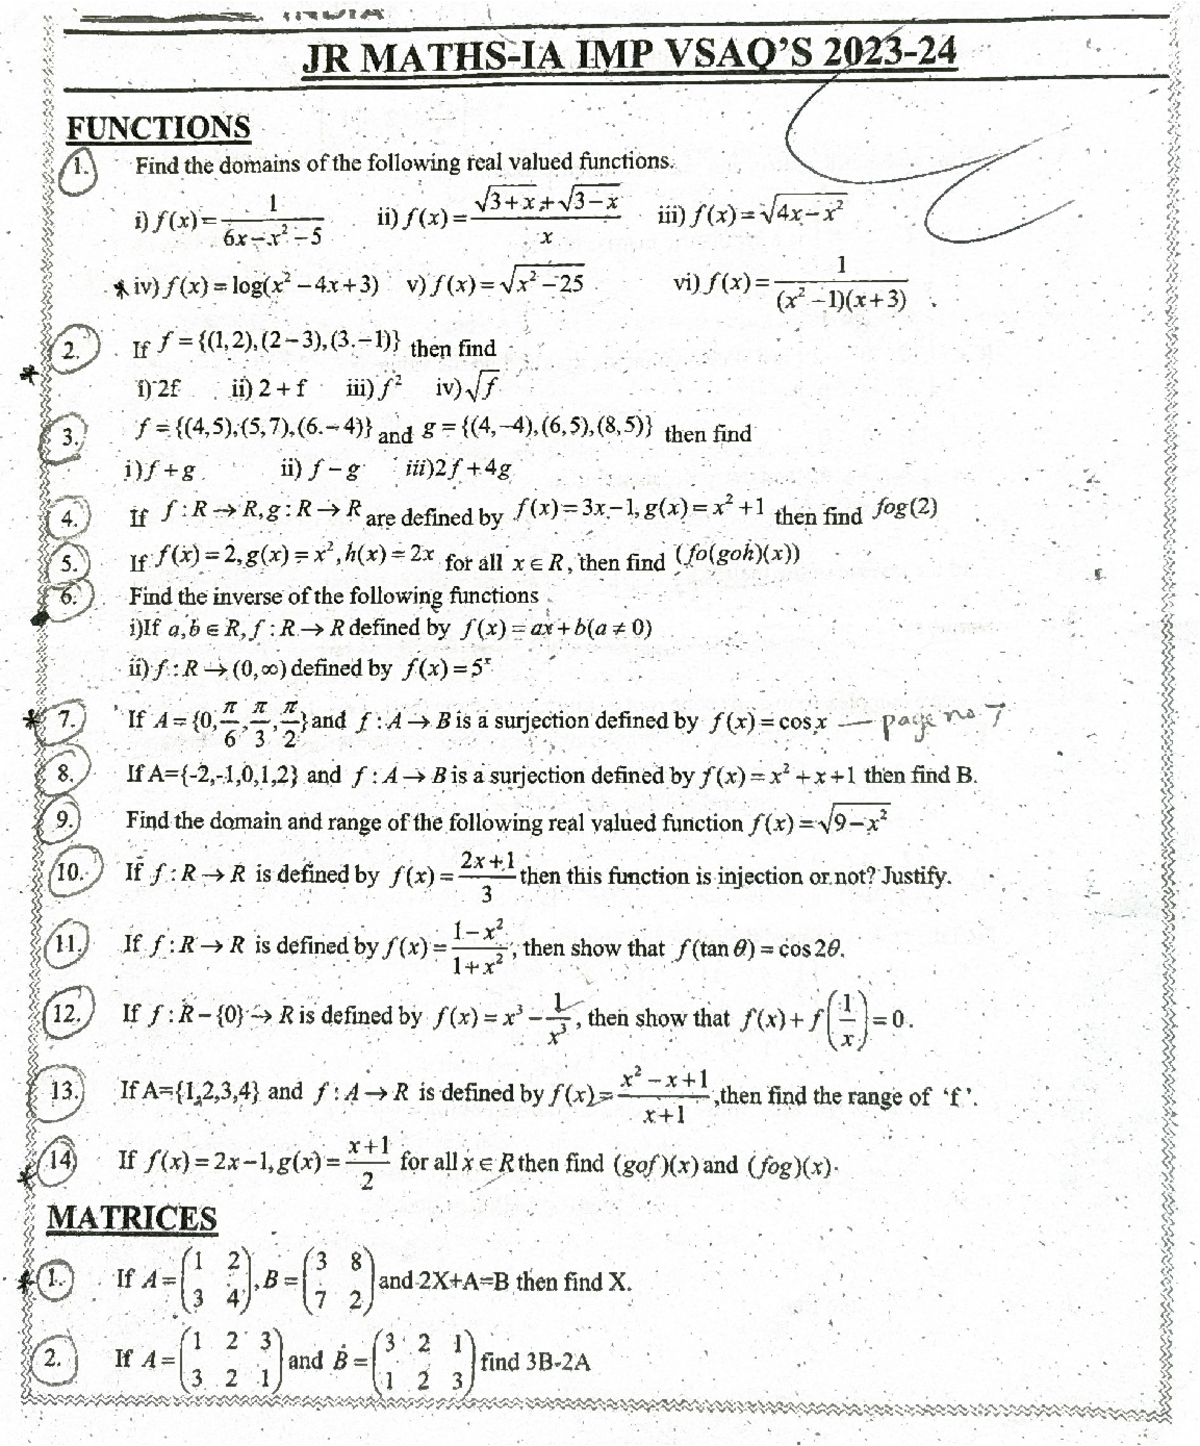 INDIA
JR MATHS-IA IMP VSAQ'S 2023-24
FUNCTIONS
1. Find the domains of the following real valued functions.
i) f(x)=1/(6x-x²-5) ii) f(x)=(√(3+x)+√(3-x))/x iii) f(x)=√(4x-x²)
* iv) f(x)=log(x²-4x+3) v) f(x)=√(x²-25) vi) f(x)=1/((x²-1)(x+3))
2. If f={(1,2),(2-3),(3.-1)} then find
* i) 2f ii) 2+f iii) f² iv) √f
3. f={(4,5),(5,7),(6.-4)} and g={(4,-4),(6,5),(8,5)} then find
i) f+g ii) f-g iii)2f+4g
4. If f:R→R,g:R→R are defined by f(x)=3x-1,g(x)=x²+1 then find fog(2)
5. If f(x)=2,g(x)=x²,h(x)=2x for all x∈R, then find (fo(goh)(x))
6. Find the inverse of the following functions
i)If a,b∈R,f:R→R defined by f(x)=ax+b(a≠0)
ii) f:R→(0,∞) defined by f(x)=5ˣ
* 7. If A={0,π/6,π/3,π/2}and f:A→B is a surjection defined by f(x)=cosx — page no. 7
8. If A={-2,-1,0,1,2} and f:A→B is a surjection defined by f(x)=x²+x+1 then find B.
9. Find the domain and range of the following real valued function f(x)=√(9-x²)
10. If f:R→R is defined by f(x)=(2x+1)/3 then this function is injection or not? Justify.
11. If f:R→R is defined by f(x)=(1-x²)/(1+x²), then show that f(tanθ)=cos2θ.
12. If f:R-{0}→R is defined by f(x)=x³-1/x³, then show that f(x)+f(1/x)=0.
13. If A={1,2,3,4} and f:A→R is defined by f(x)=(x²-x+1)/(x+1),then find the range of 'f'.
* 14 If f(x)=2x-1,g(x)=(x+1)/2 for all x∈R then find (gof)(x) and (fog)(x).
MATRICES
* 1. If A=(1 2; 3 4), B=(3 8; 7 2) and 2X+A=B then find X.
2. If A=(1 2 3; 3 2 1) and B=(3 2 1; 1 2 3) find 3B-2A